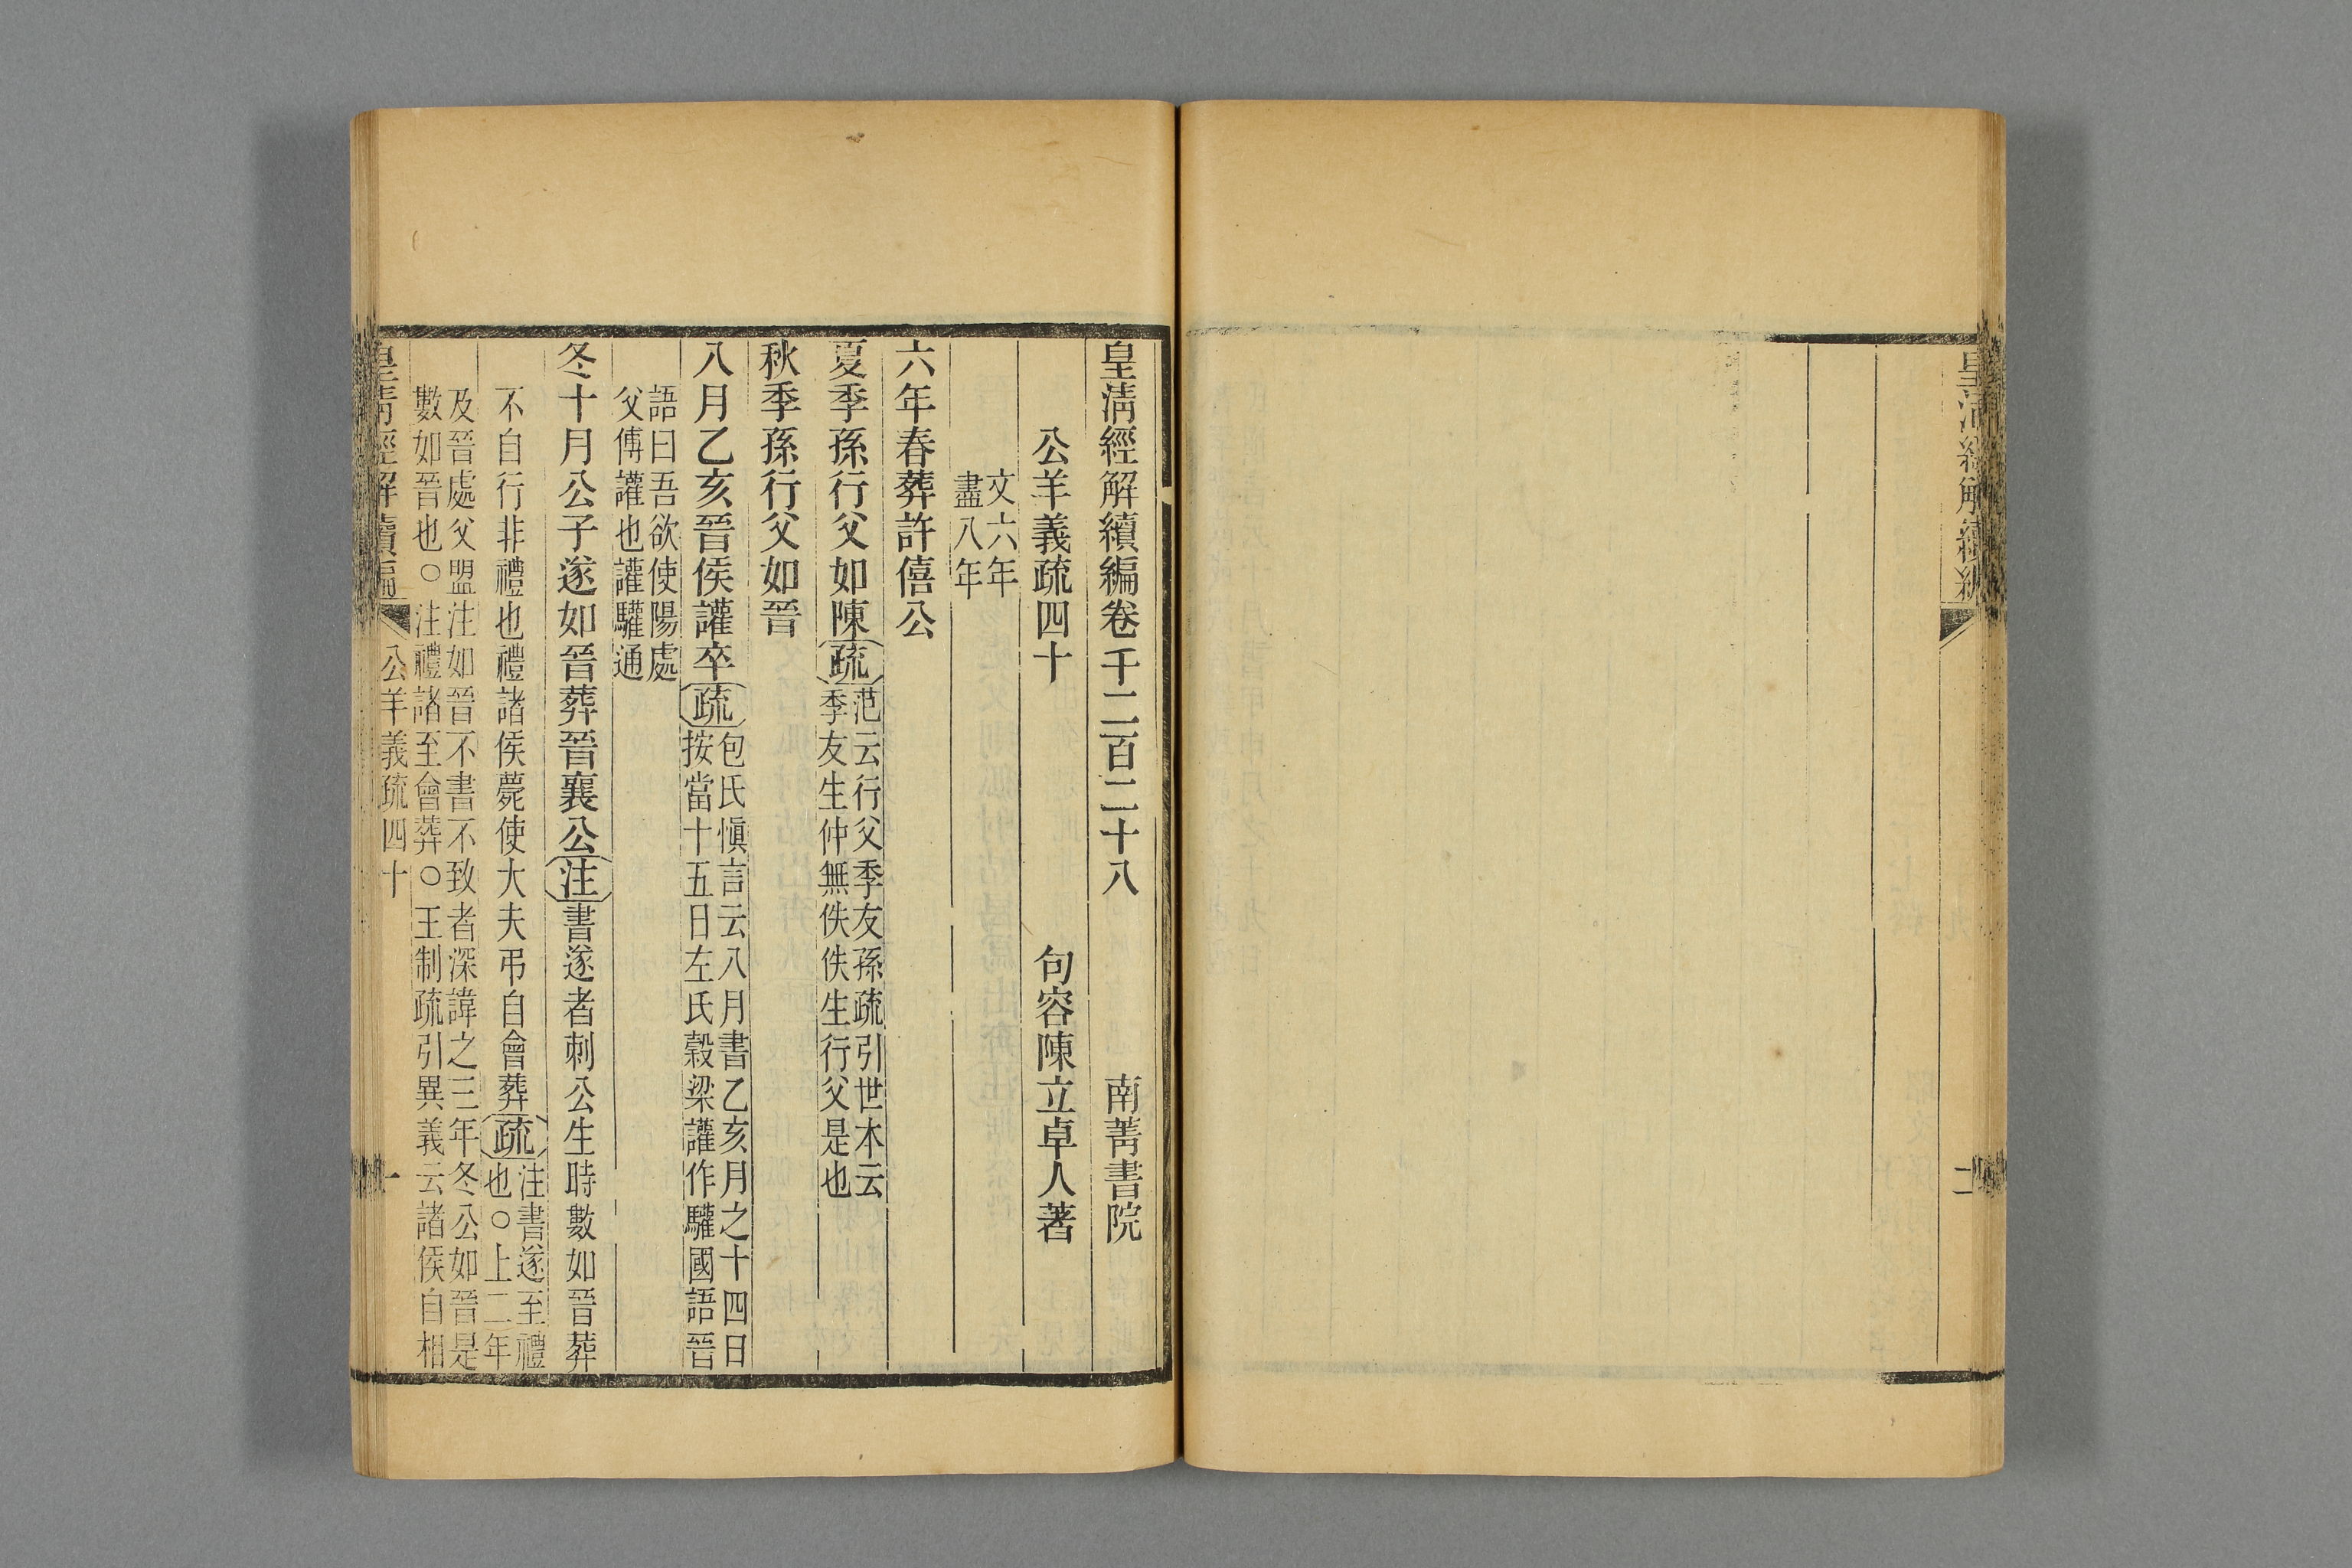 皇清經解續編
二
皇清經解續編卷千二百二十八　南菁書院
公羊義疏四十　句容陳立卓人著
文六年
盡八年
六年春葬許僖公
夏季孫行父如陳疏范云行父季友孫疏引世本云
季友生仲無佚佚生行父是也
秋季孫行父如晉
八月乙亥晉侯讙卒疏包氏愼言云八月書乙亥月之十四日
按當十五日左氏穀梁讙作驩國語晉
語曰吾欲使陽處
父傅讙也讙驩通
冬十月公子遂如晉葬晉襄公注書遂者刺公生時數如晉葬
不自行非禮也禮諸侯薨使大夫弔自會葬疏注書遂至禮
也○上二年
及晉處父盟注如晉不書不致者深諱之三年冬公如晉是
數如晉也○注禮諸至會葬○王制疏引異義云諸侯自相
皇清經解續編　公羊義疏四十　一